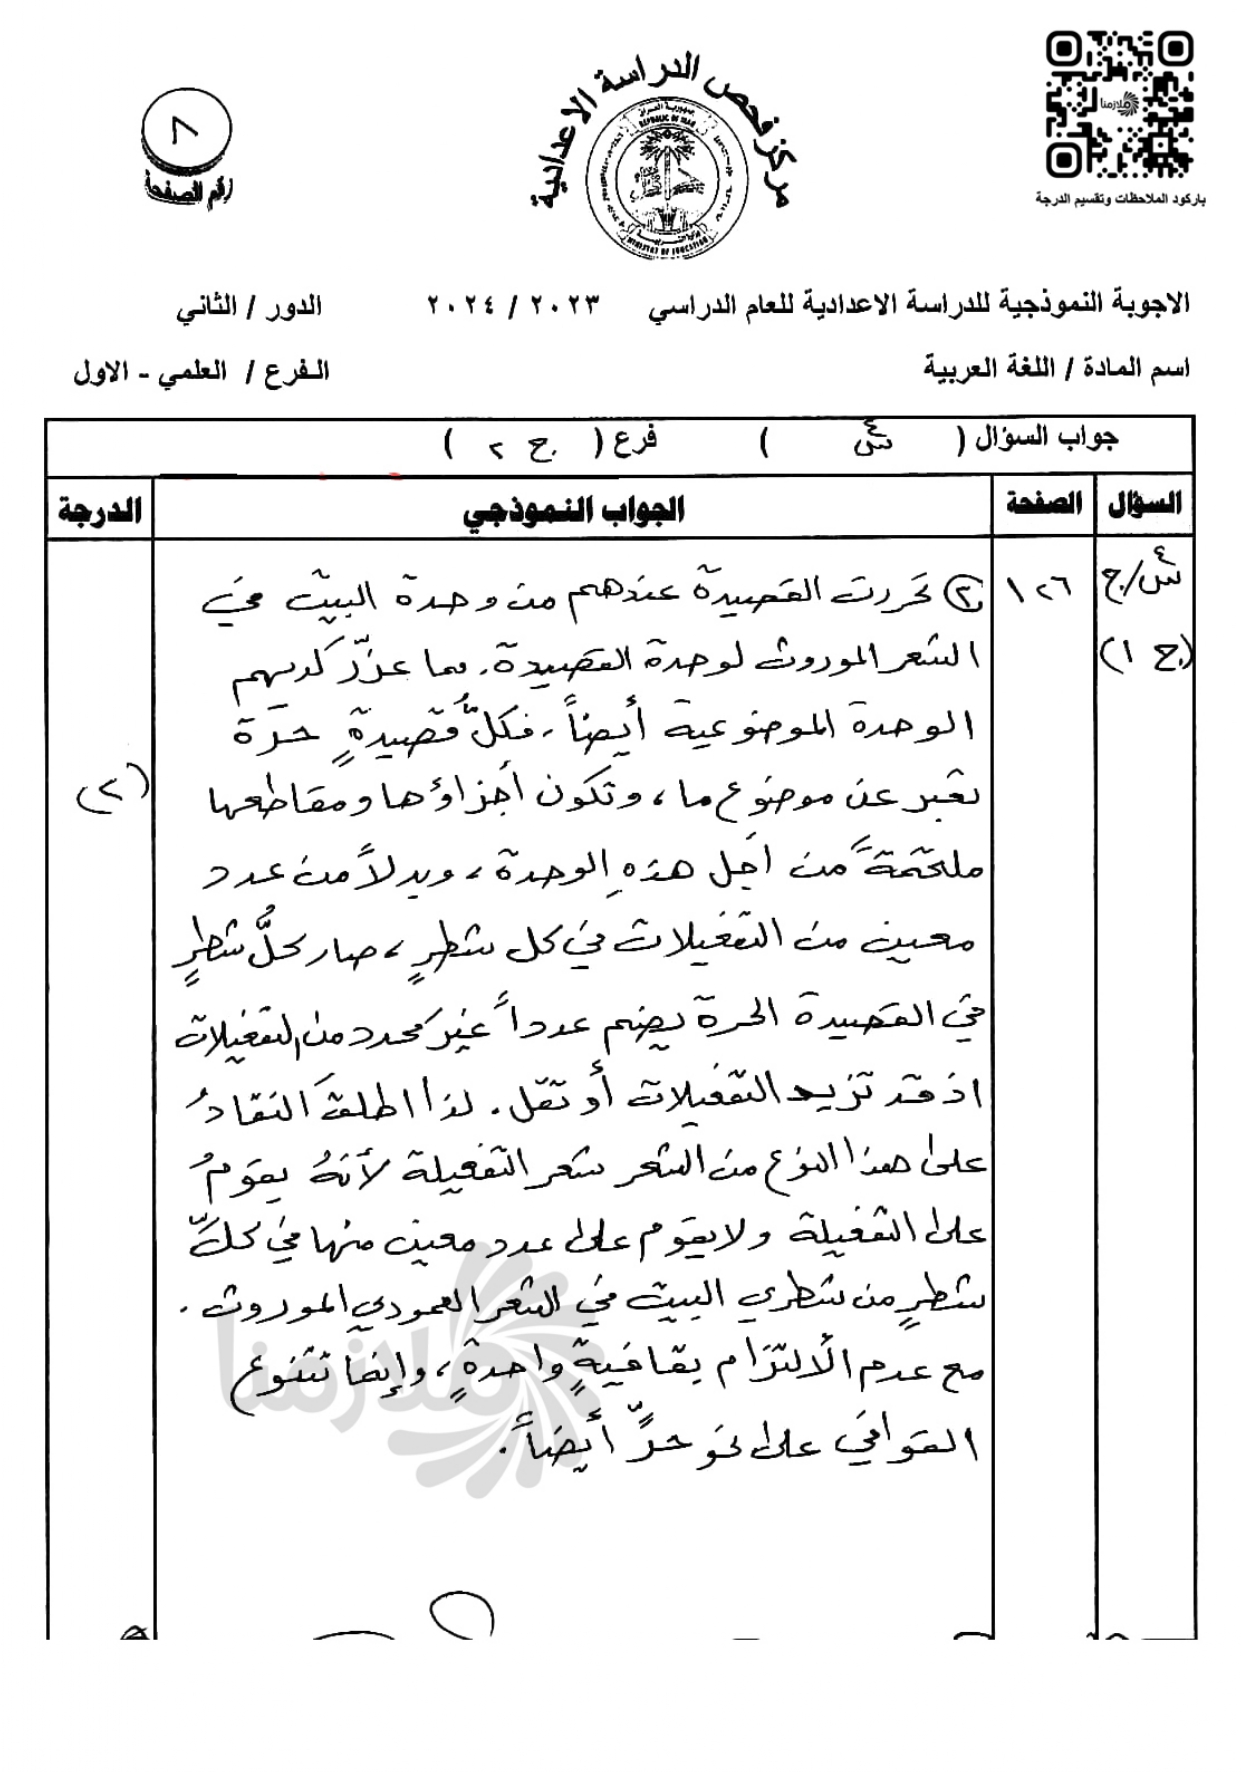 باركود الملاحظات وتقسيم الدرجة
ملازمنا
مركز فحص الدراسة الاعدادية
REPUBLIC OF IRAQ
MINISTRY OF EDUCATION
٨
رقم الصفحة
الاجوبة النموذجية للدراسة الاعدادية للعام الدراسي ٢٠٢٣ / ٢٠٢٤ الدور / الثاني
اسم المادة / اللغة العربية الفرع / العلمي - الاول
جواب السؤال ( س٤ ) فرع ( ج ٢ )
السؤال الصفحة الجواب النموذجي الدرجة
س٤/ج ١٢٦ ② تحررت القصيدة عندهم من وحدة البيت في
(ج ١) الشعر الموروث لوحدة القصيدة. مما عزّز لديهم
الوحدة الموضوعية أيضاً، فكلُّ قصيدةٍ حرّة
تعبر عن موضوع ما، وتكون أجزاؤها ومقاطعها (٢)
ملتحمةً من أجل هذهِ الوحدة، وبدلاً من عدد
معين من التفعيلات في كل شطرٍ، صار كلُّ شطرٍ
في القصيدة الحرة يضم عدداً غير محدد من التفعيلات
اذ قد تزيد التفعيلات أو تقل. لذا اطلقَ النقادُ
على هذا النوع من الشعر شعر التفعيلة لأنهُ يقومُ
على التفعيلة ولا يقوم على عدد معين منها في كلّ
شطرٍ من شطري البيت في الشعر العمودي الموروث.
مع عدم الألتزام بقافيةٍ واحدةٍ، وإنما تتنوع
القوافي على نحو حرٍّ أيضاً.
ملازمنا